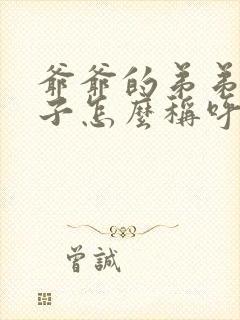 爺爺的弟弟
子怎麼稱呼
曾誠